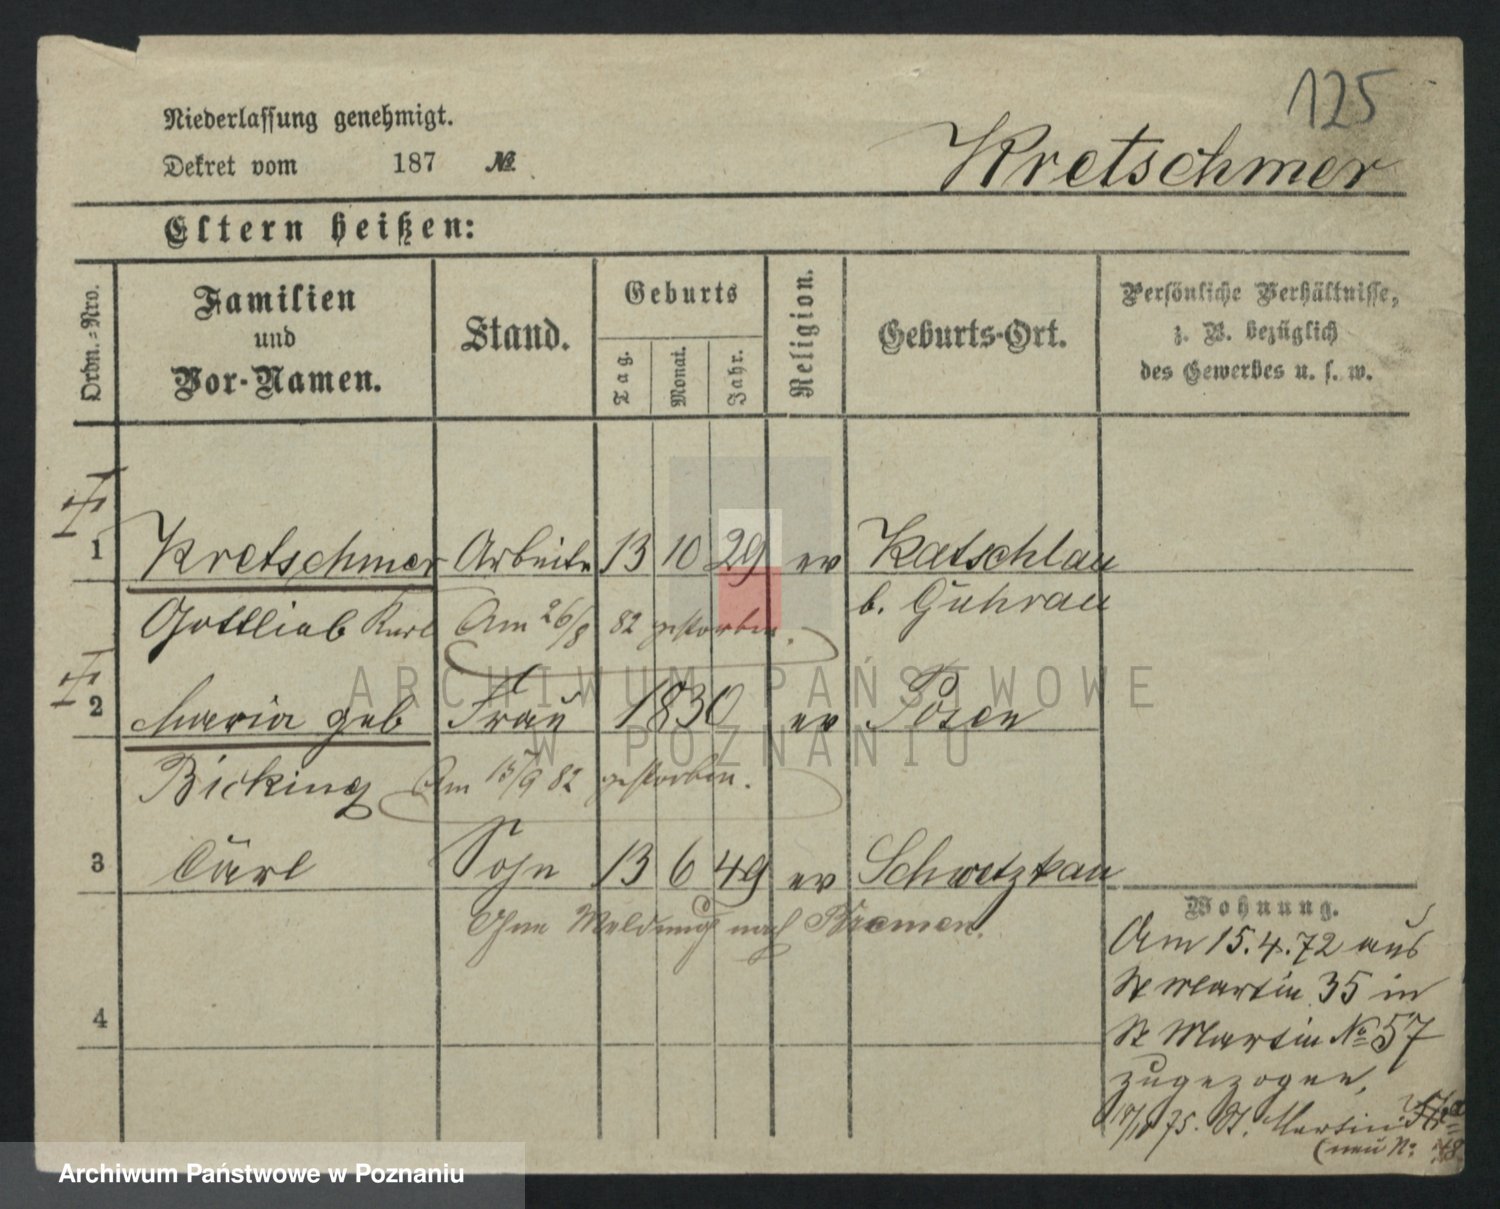 125
Niederlassung genehmigt.
Dekret vom 187 №
Kretschmer
Eltern heißen:
Ordn.-Nro.
Familien und Vor-Namen.
Stand.
Geburts
Tag.
Monat.
Jahr.
Religion.
Geburts-Ort.
Persönliche Verhältnisse,
z. B. bezüglich
des Gewerbes u. s. w.
1 Kretschmer Arbeiter 13 10 29 ev Katschlau
Gottlieb Karl Am 26/8 82 gestorben. b. Guhrau
2 Maria geb Frau 1830 ev Posen
Bicking Am 15/9 82 gestorben.
3 Carl Sohn 13 6 49 ev Schwetzkau
Ohne Meldung nach Bremen.
4
Wohnung.
Am 15.4.72 aus
St Martin 35 in
St Martin № 57
zugezogen,
75. St. Martin
(neu N:
ARCHIWUM PAŃSTWOWE
W POZNANIU
Archiwum Państwowe w Poznaniu